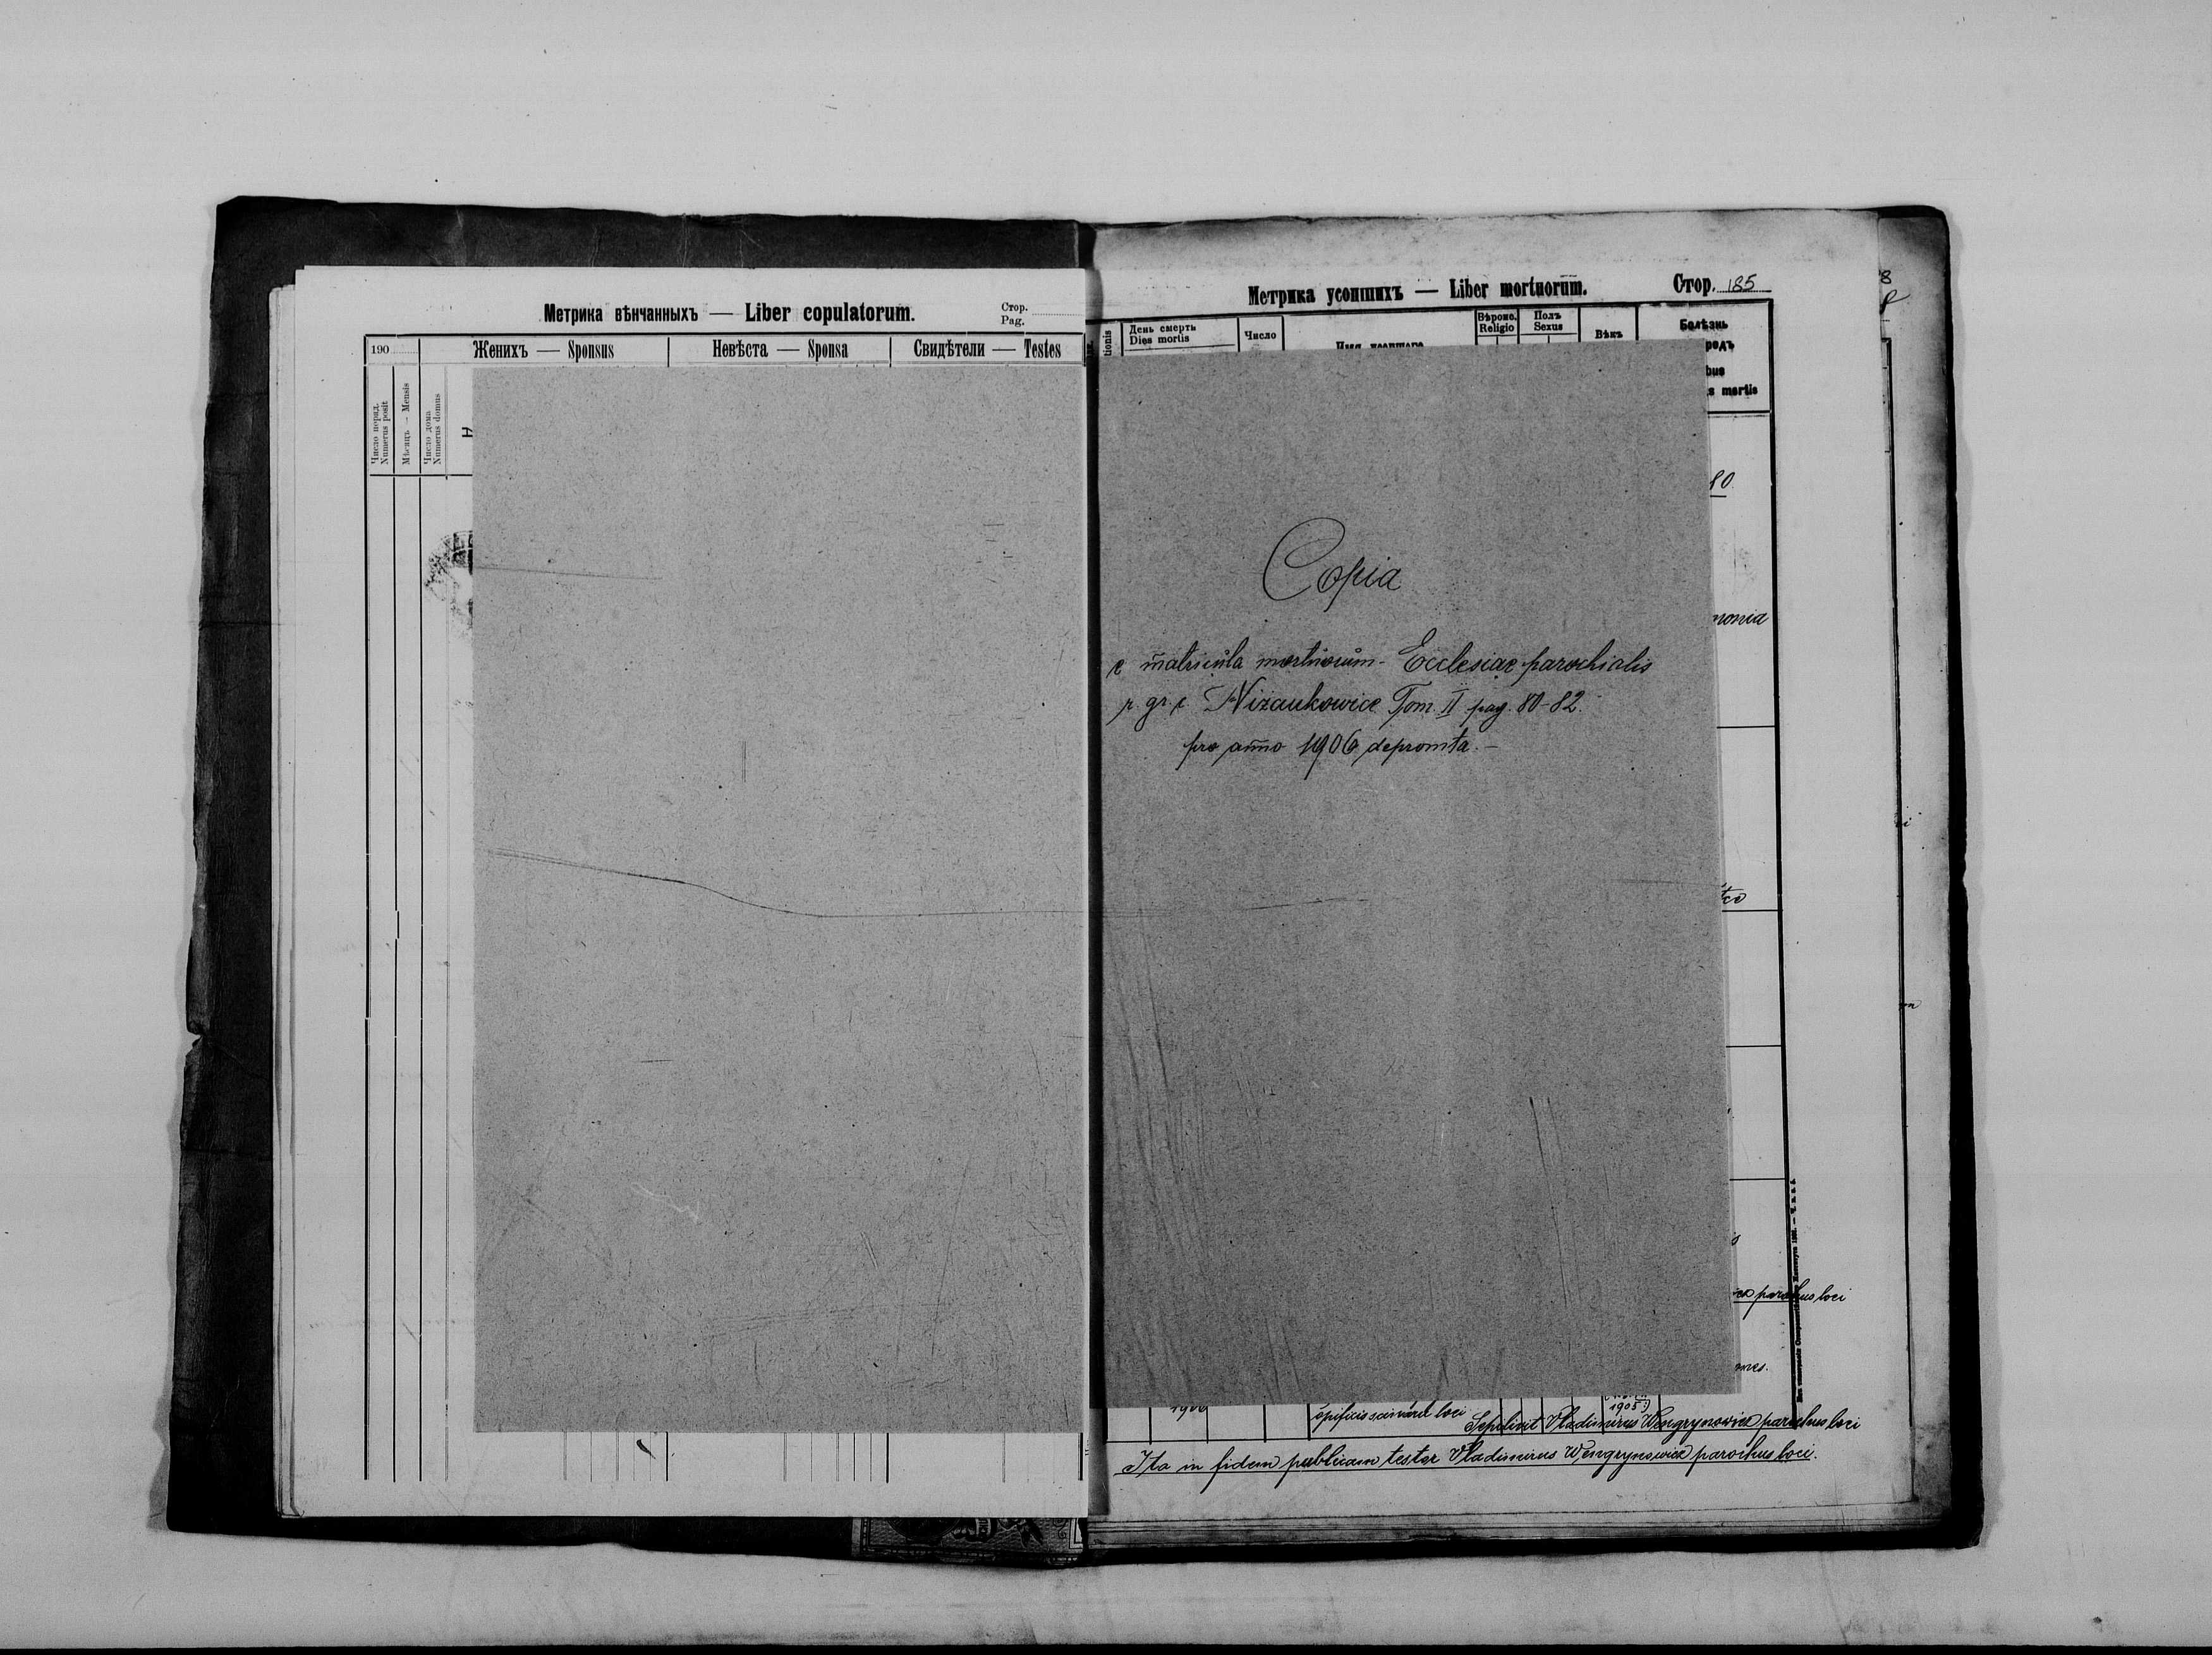 Метрика вѣнчанныхъ — Liber copulatorum.
Стор.
Pag.
190
Женихъ — Sponsus
Невѣста — Sponsa
Свидѣтели — Testes
Число поряд.
Numerus posit
Мѣсяцъ — Mensis
Число дома
Numerus domus
Метрика усопшихъ — Liber mortuorum.
Стор. 185
День смерть
Dies mortis
Число
Имя усопшаго
Вѣроис.
Religio
Полъ
Sexus
Вѣкъ
Болѣзнь
родъ
bus
s mortis
80
monia
Copia
e matricula mortuorum Ecclesiae parochialis
r. gr. c. Niżankowice Tom. II pag. 80-82.
pro anno 1906 depromta. —
parochus loci
1906
opificis loci
1905
Sepelivit Vladimirus Wengrynowicz parochus loci
Ita in fidem publicam testor Vladimirus Wengrynowicz parochus loci.